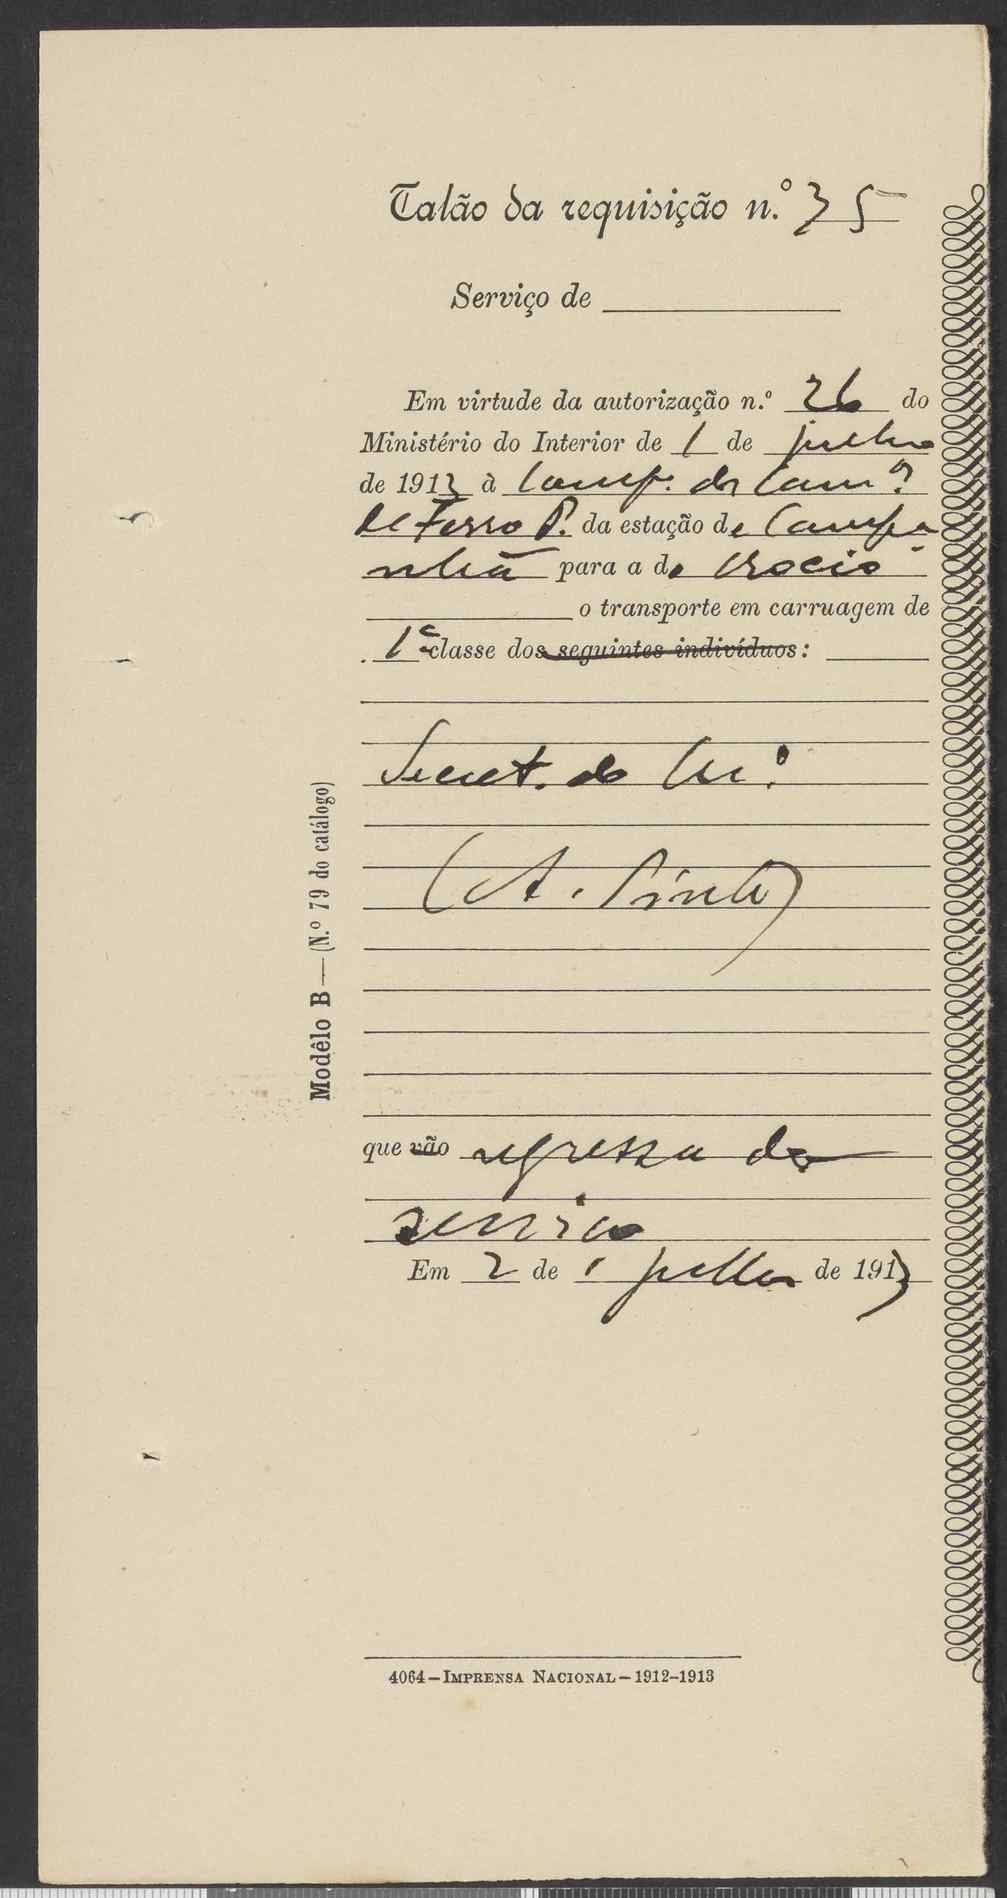 Talão da requisição n.º 35
Serviço de
Em virtude da autorização n.º 26 do
Ministério do Interior de 1 de julho
de 1913 à Comp. dos Cam.º
de Ferro P. da estação de Campa
nhã para a do Rocio
o transporte em carruagem de
1ª classe dos seguintes indivíduos:
Secret. do M.º
(A. Pinto)
que vão regressa de
serviço
Em 2 de julho de 1913
Modêlo B — (N.º 79 do catálogo)
4064 – IMPRENSA NACIONAL – 1912–1913